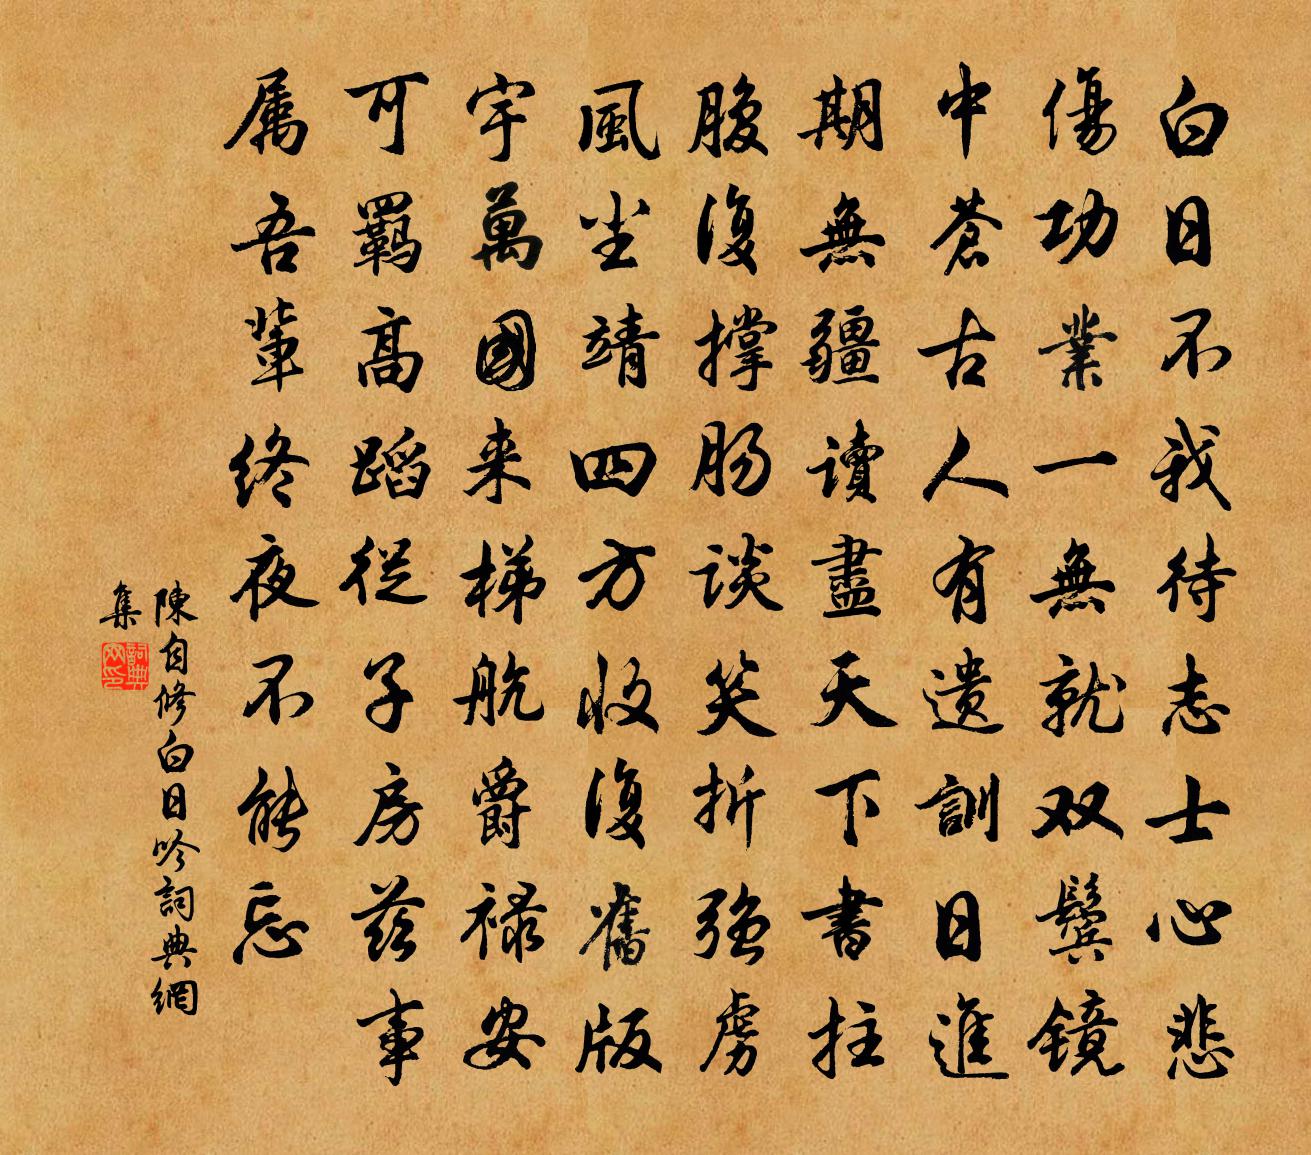 白日不我待志士心悲
傷功業一無就双鬓镜
中蒼古人有遺訓日進
期無疆讀盡天下書拄
腹復撑肠談笑折强虜
風尘靖四方收復舊版
宇萬國来梯航爵禄安
可羁高蹈從子房茲事
属吾輩终夜不能忘
陳自修白日吟詞典網
集
詞典
网印